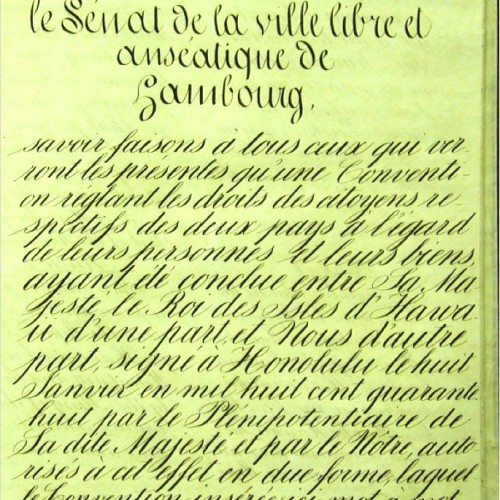 le Sénat de la ville libre et
anséatique de
Hambourg,
savoir faisons à tous ceux qui ver-
ront les présentes qu'une Conventi-
on réglant les droits des citoyens re-
spectifs des deux pays à l'égard
de leurs personnes et leurs biens,
ayant été conclue entre Sa Ma-
jesté le Roi des Isles d'Hawa-
ii d'une part, et Nous d'autre
part, signé à Honolulu le huit
Janvier en mil huit cent quarante
huit par le Plénipotentiaire de
Sa dite Majesté et par le Nôtre, auto-
risés à cet effet en due forme, laquel
le Convention insérée ici mot à mot